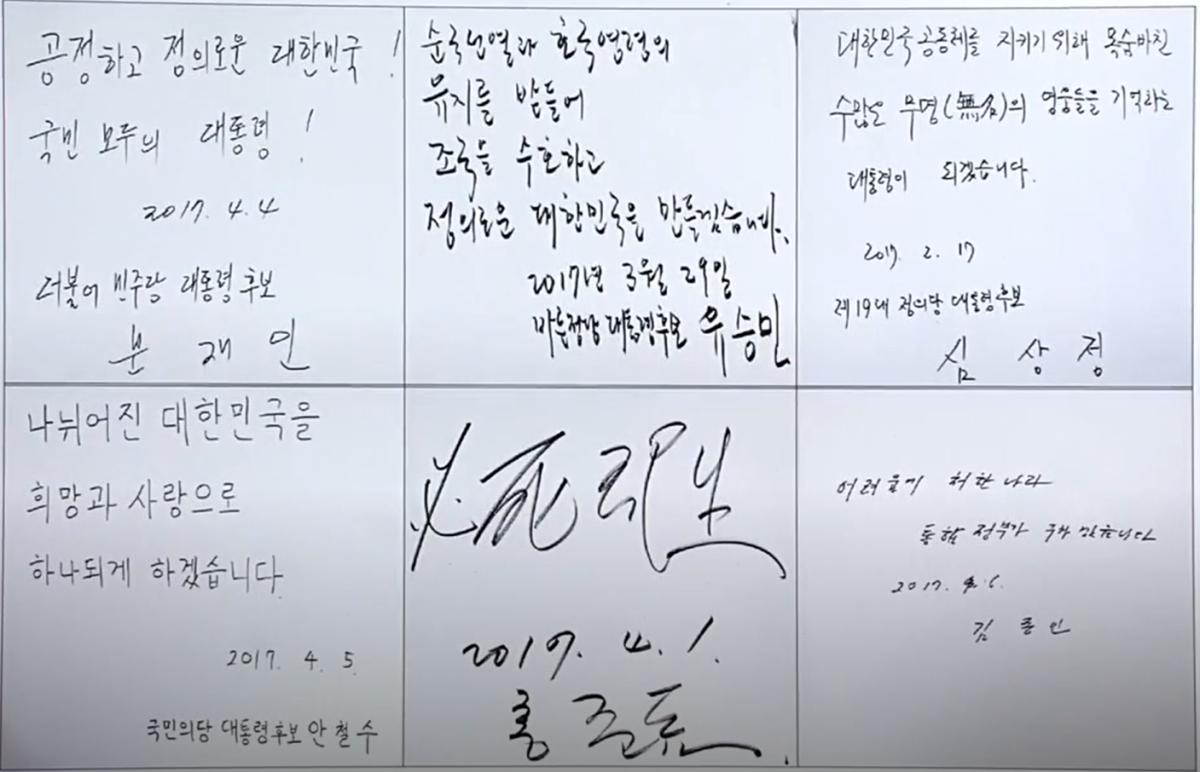 공정하고 정의로운 대한민국!
국민 모두의 대통령!
2017. 4. 4
더불어 민주당 대통령 후보
문 재 인
순국선열과 호국영령의
유지를 받들어
조국을 수호하고
정의로운 대한민국을 만들겠습니다.
2017년 3월 29일
바른정당 대통령후보 유승민
대한민국 공동체를 지키기 위해 목숨바친
수많은 무명(無名)의 영웅들을 기억하는
대통령이 되겠습니다.
2017. 2. 17
제19대 정의당 대통령후보
심 상 정
나뉘어진 대한민국을
희망과 사랑으로
하나되게 하겠습니다
2017. 4. 5.
국민의당 대통령후보 안 철 수
必死則生
2017. 4. 1.
홍 준 표
어려움에 처한 나라
통합 정부가
2017. 4. 5.
김 종 인